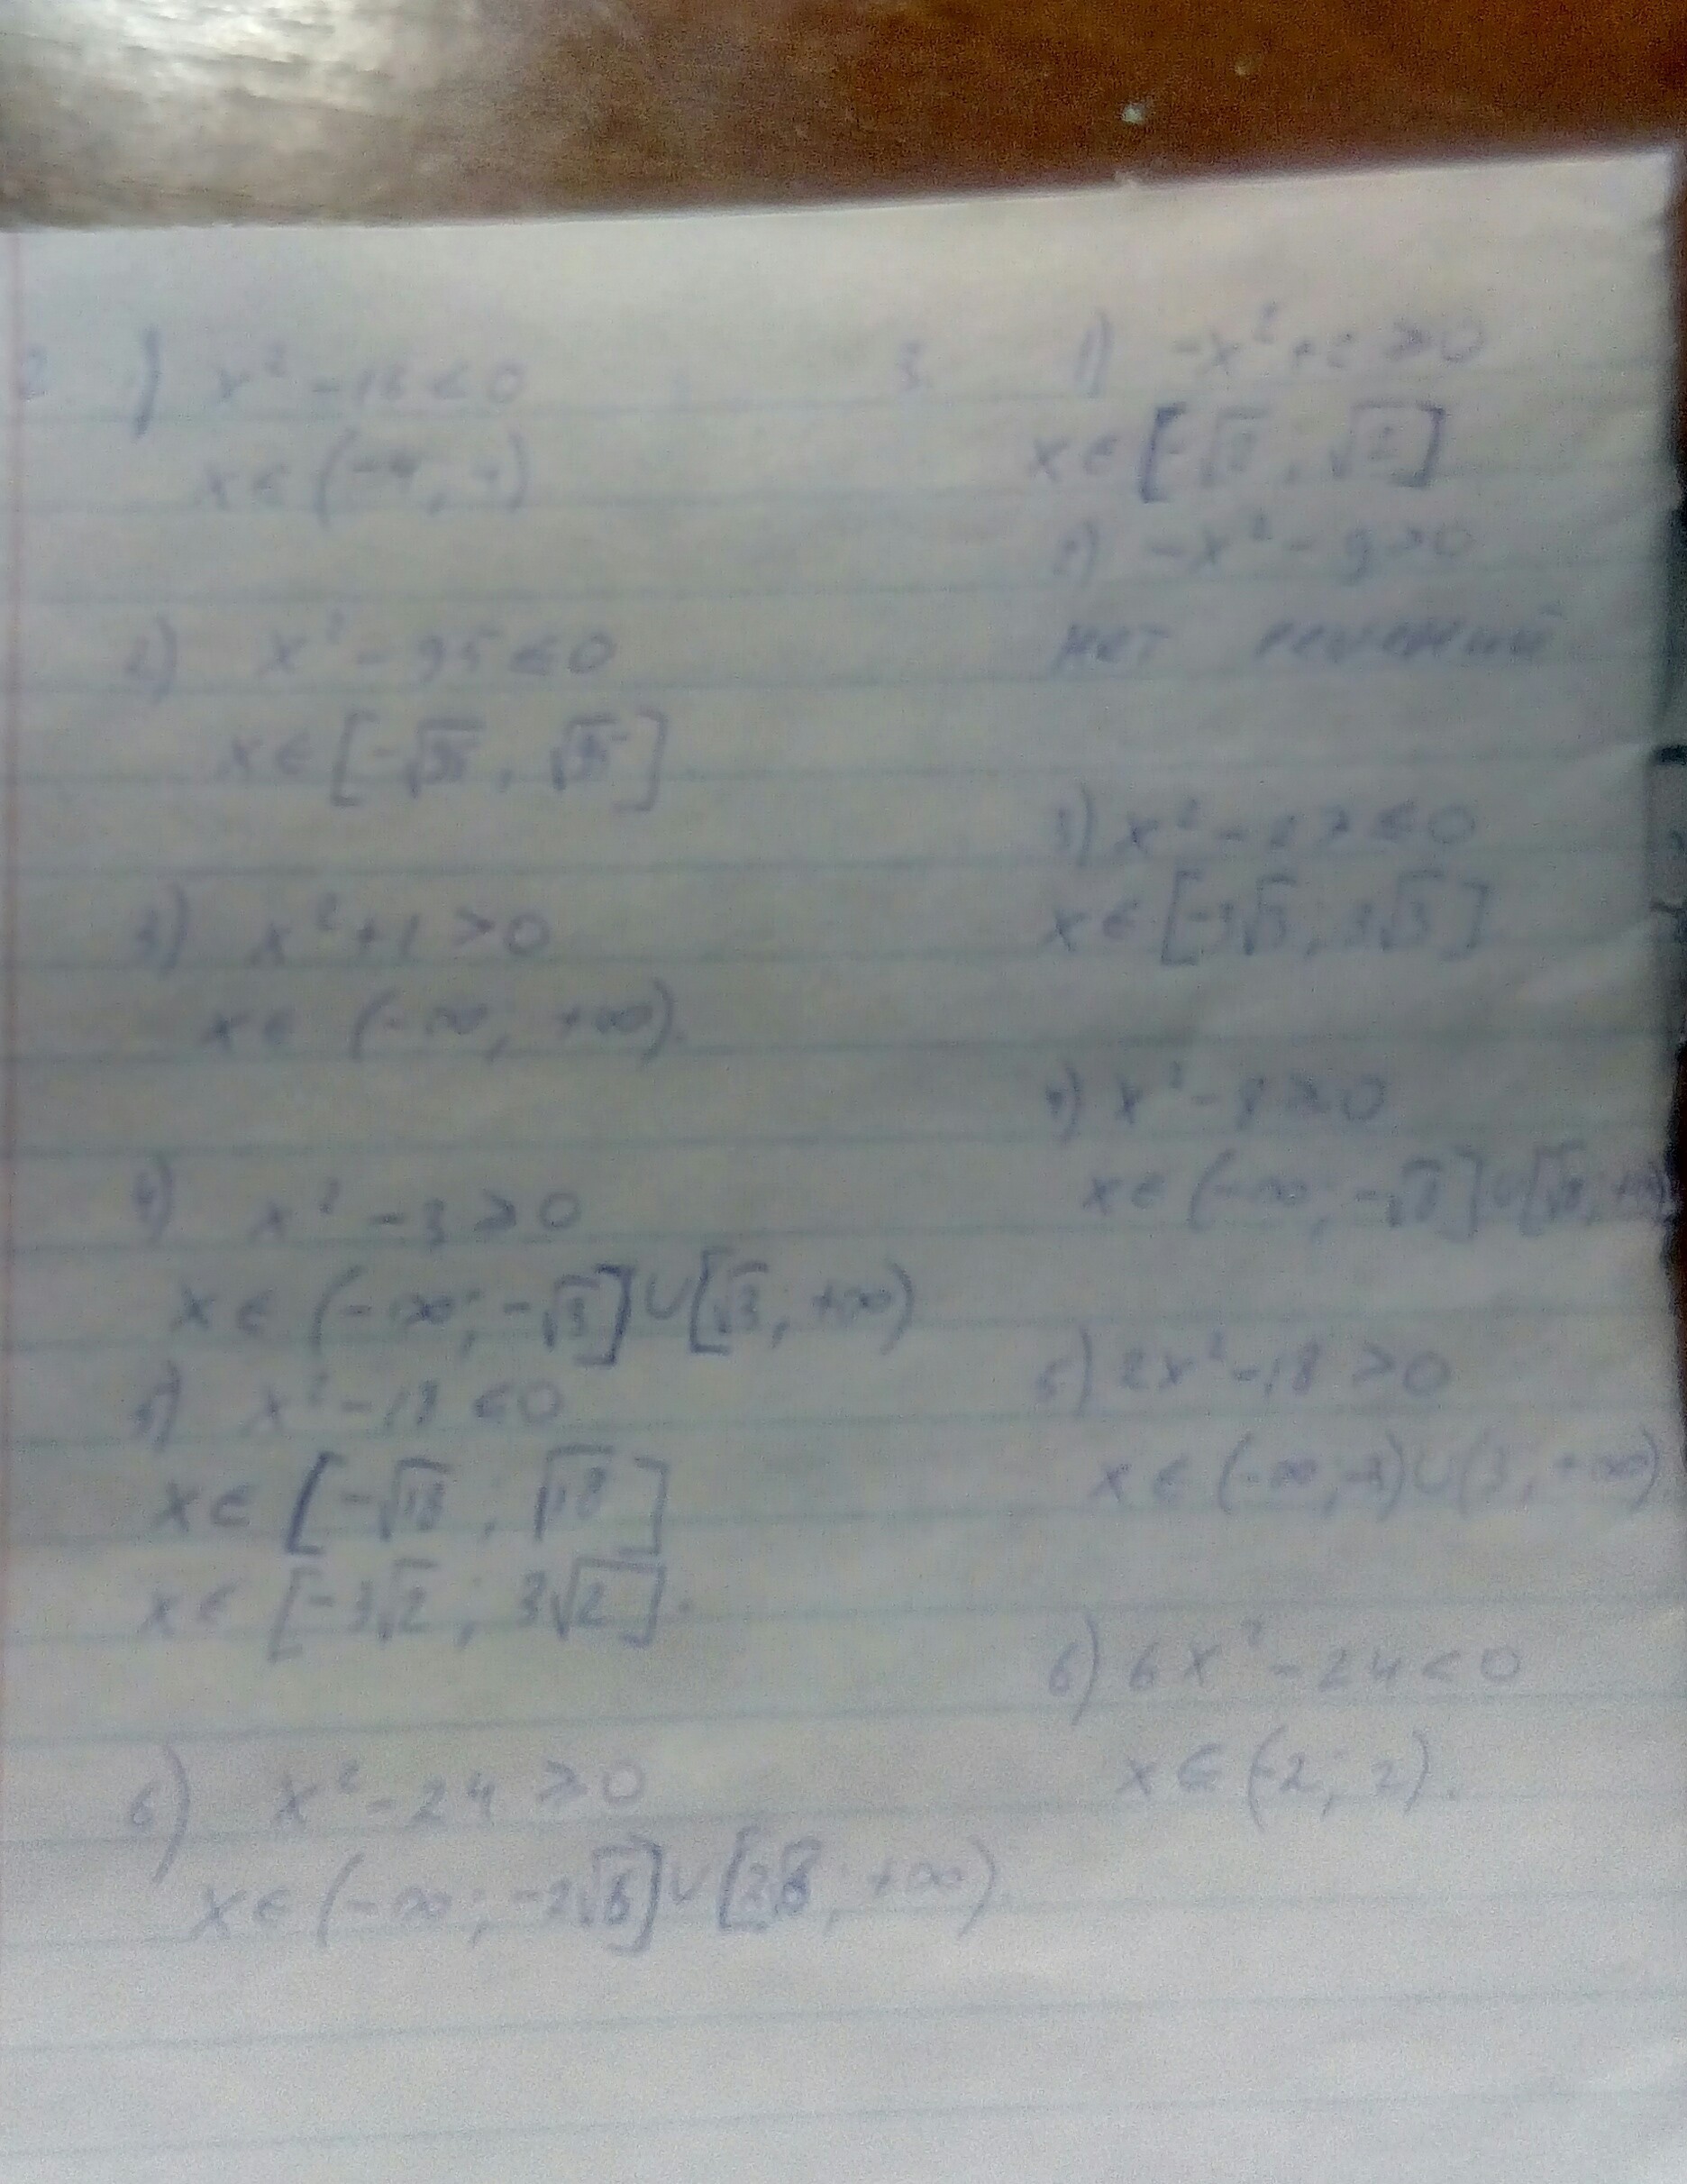 2. 1) x² - 16 < 0
x ∈ (-4; 4)
2) x² - 95 ≤ 0
x ∈ [-√95; √95]
3) x² + 1 > 0
x ∈ (-∞; +∞).
4) x² - 3 ≥ 0
x ∈ (-∞; -√3] ∪ [√3; +∞)
5) x² - 18 ≤ 0
x ∈ [-√18; √18]
x ∈ [-3√2; 3√2].
6) x² - 24 ≥ 0
x ∈ (-∞; -2√6] ∪ [2√6; +∞).
3. 1) -x² + 2 ≥ 0
x ∈ [-√2; √2]
2) -x² - 9 > 0
нет решений
3) x² - 27 ≤ 0
x ∈ [-3√3; 3√3]
4) x² - 8 ≥ 0
x ∈ (-∞; -√8] ∪ [√8; +∞)
5) 2x² - 18 > 0
x ∈ (-∞; -3) ∪ (3; +∞)
6) 6x² - 24 < 0
x ∈ (-2; 2).